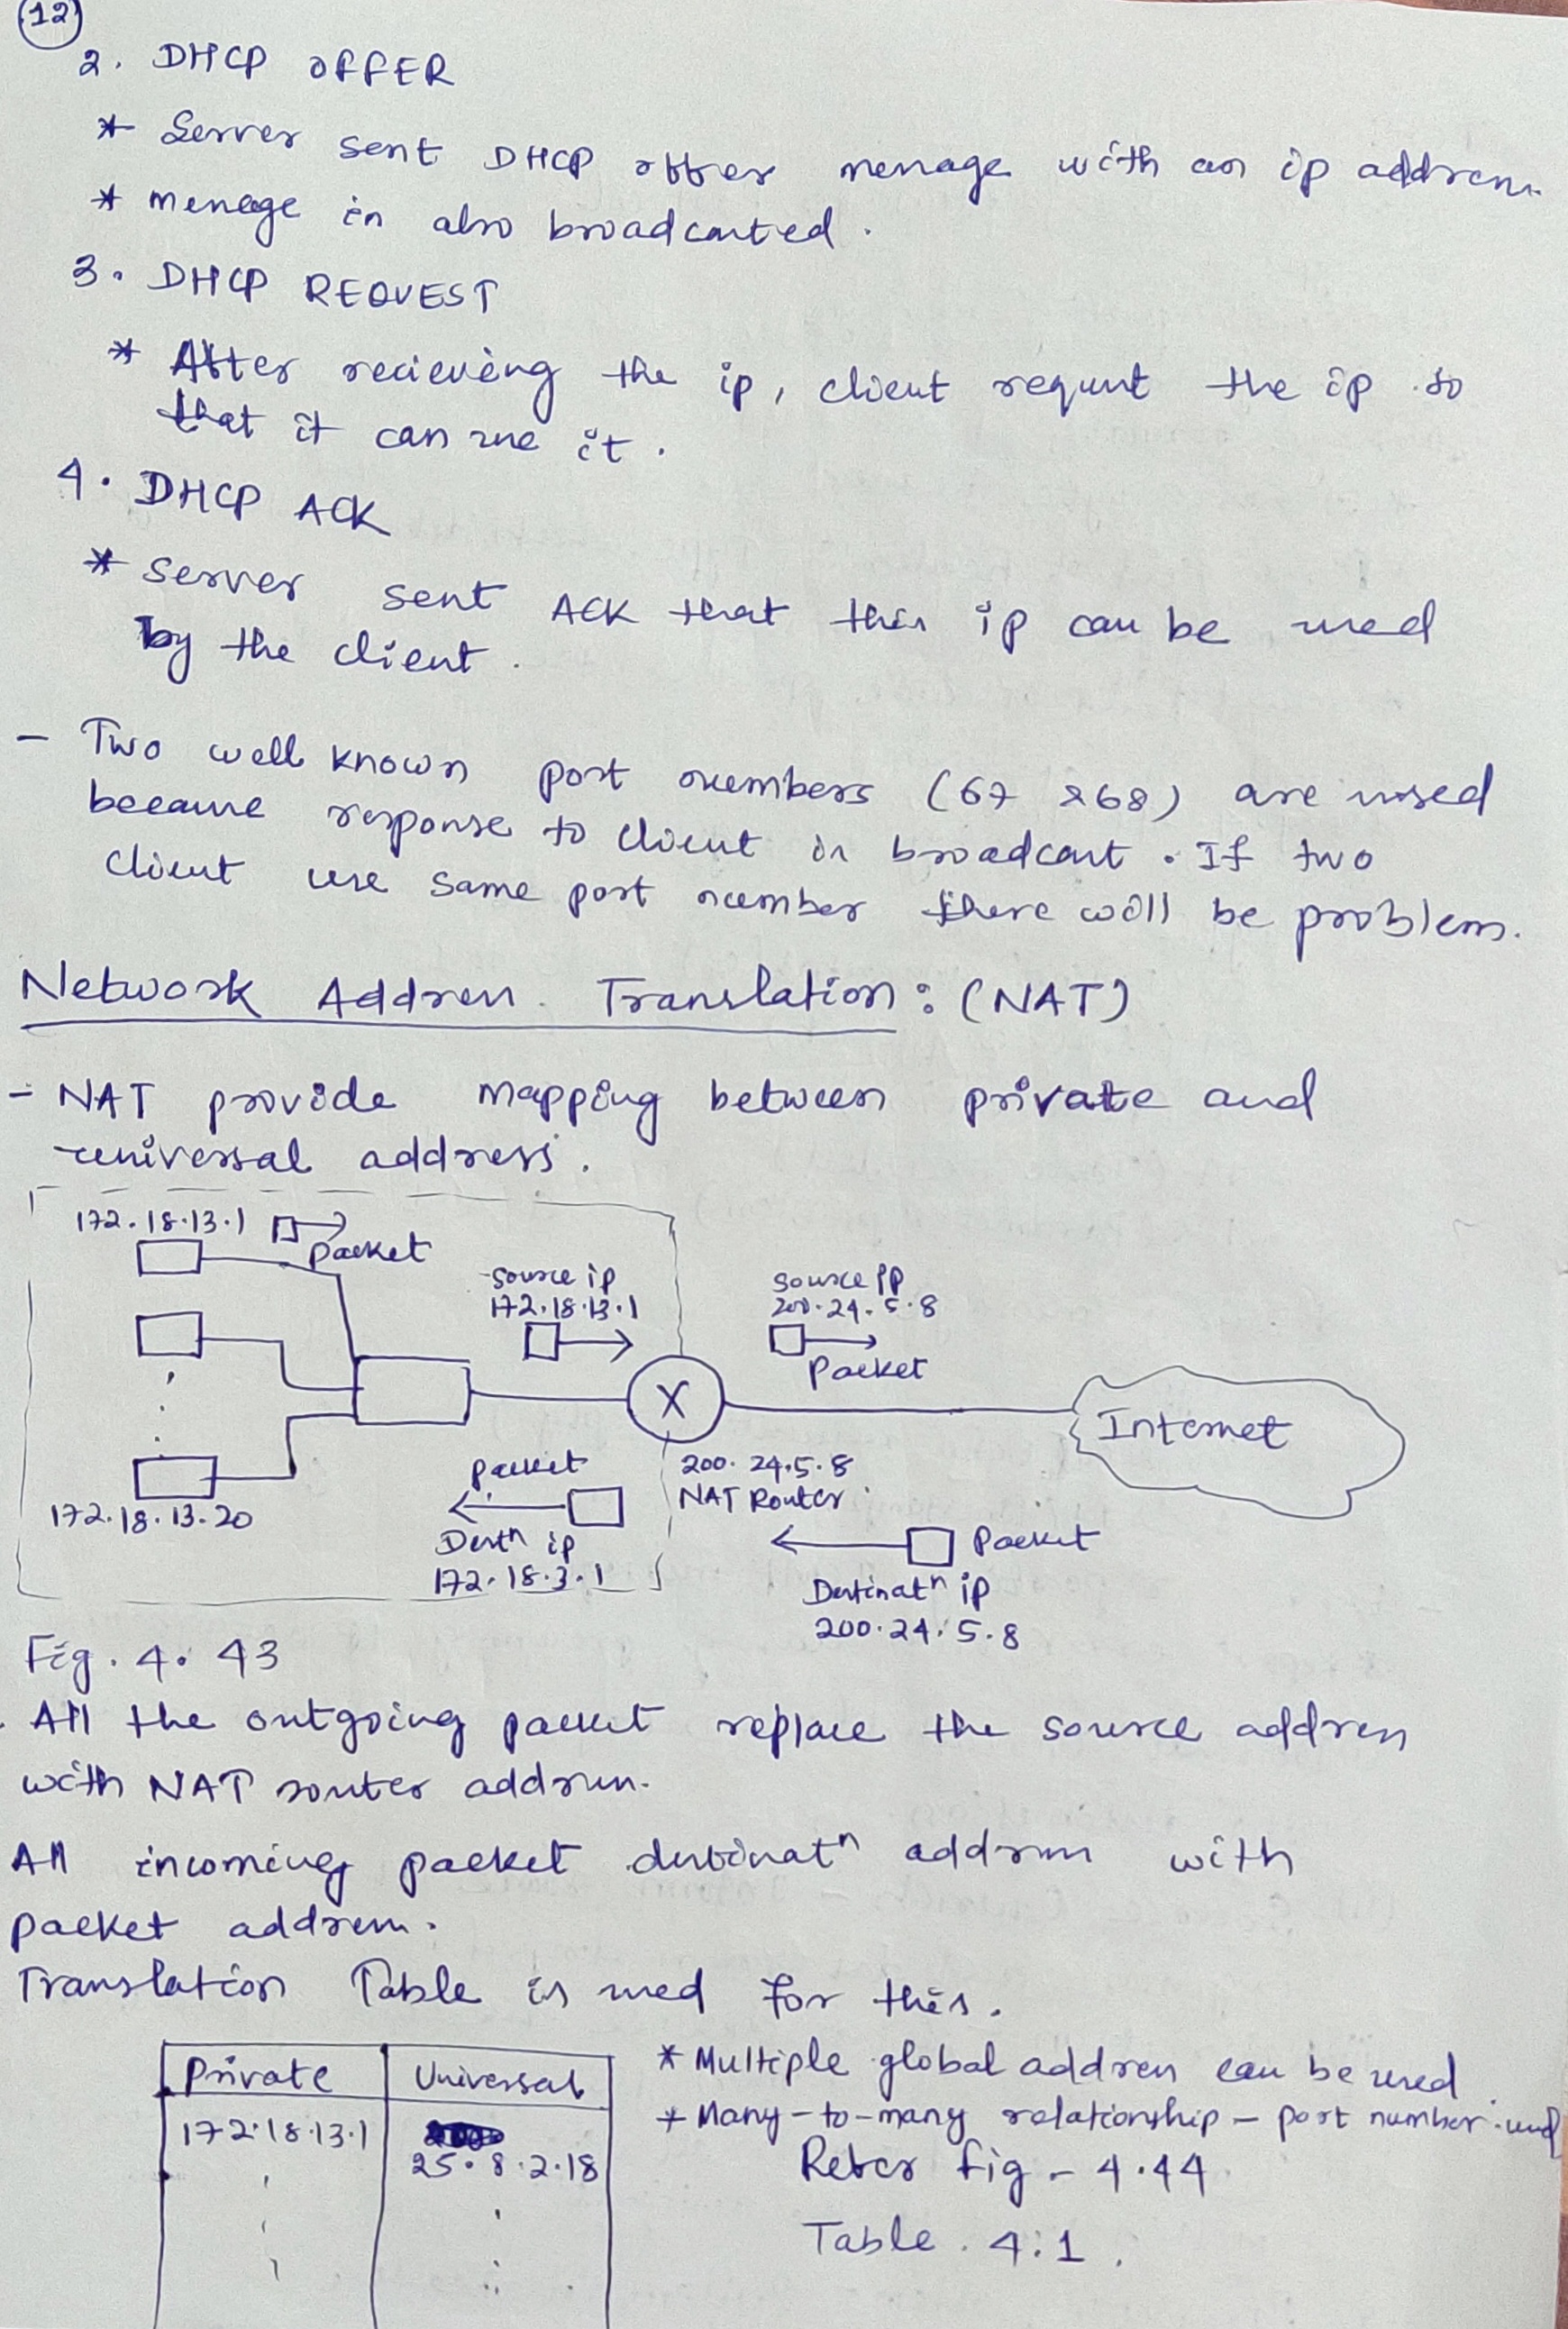 12
2. DHCP OFFER
* Server sent DHCP offer message with an ip address.
* message is also broadcasted.
3. DHCP REQUEST
* After recieving the ip, client request the ip so
that it can use it.
4. DHCP ACK
* Server sent ACK that this ip can be used
by the client.
- Two well known port numbers (67 & 68) are used
because response to client is broadcast. If two
client use same port number there will be problem.
Network Address Translation: (NAT)
- NAT provide mapping between private and
universal address.
172.18.13.1
Packet
source ip
172.18.13.1
source IP
200.24.5.8
Packet
X
Internet
172.18.13.20
packet
Destn ip
172.18.3.1
200.24.5.8
NAT Router
Packet
Destinatn ip
200.24.5.8
Fig. 4.43
All the outgoing packet replace the source address
with NAT router address.
All incoming packet destinatn address with
packet address.
Translation Table is used for this.
Private Universal
172.18.13.1
25.8.2.18
* Multiple global address can be used
* Many-to-many relationship - port number used
Refer fig - 4.44
Table. 4.1.